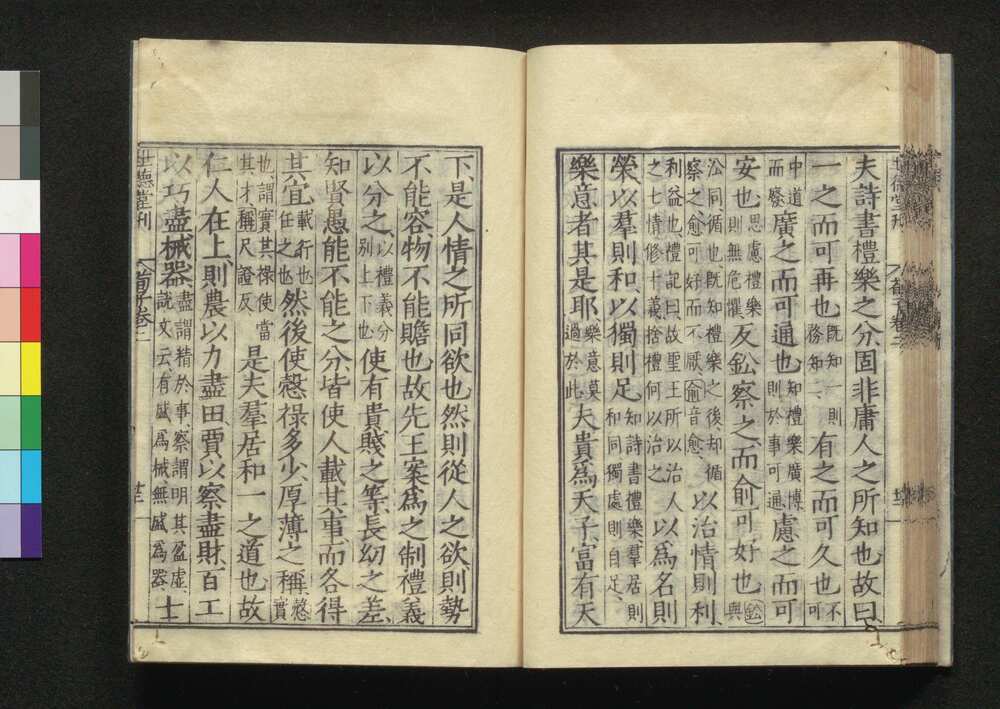 夫詩書禮樂之分固非庸人之所知也故曰
一之而可再也既知一則務知二有之而可久也不可
中道而廢廣之而可通也知禮樂廣博則於事可通慮之而可
安也思慮禮樂則無危懼反鈆察之而俞可好也鈆與
沿同循也既知禮樂之後却循察之愈可好而不厭俞音愈以治情則利
利益也禮記曰故聖王所以治人之七情修十義捨禮何以治之以爲名則
榮以羣則和以獨則足知詩書禮樂羣居則和同獨處則自足
樂意者其是耶樂意莫過於此夫貴爲天子富有天
下是人情之所同欲也然則從人之欲則勢
不能容物不能贍也故先王案爲之制禮義
以分之以禮義分別上下也使有貴賤之等長幼之差
知賢愚能不能之分皆使人載其事而各得
其宜載行也任之也然後使慤祿多少厚薄之稱慤實
也謂實其祿使當其才稱尺證反是夫羣居和一之道也故
仁人在上則農以力盡田賈以察盡財百工
以巧盡械器盡謂精於事察謂明其盈虛說文云有盛爲械無盛爲器士
世德堂刊 荀子卷二 十三